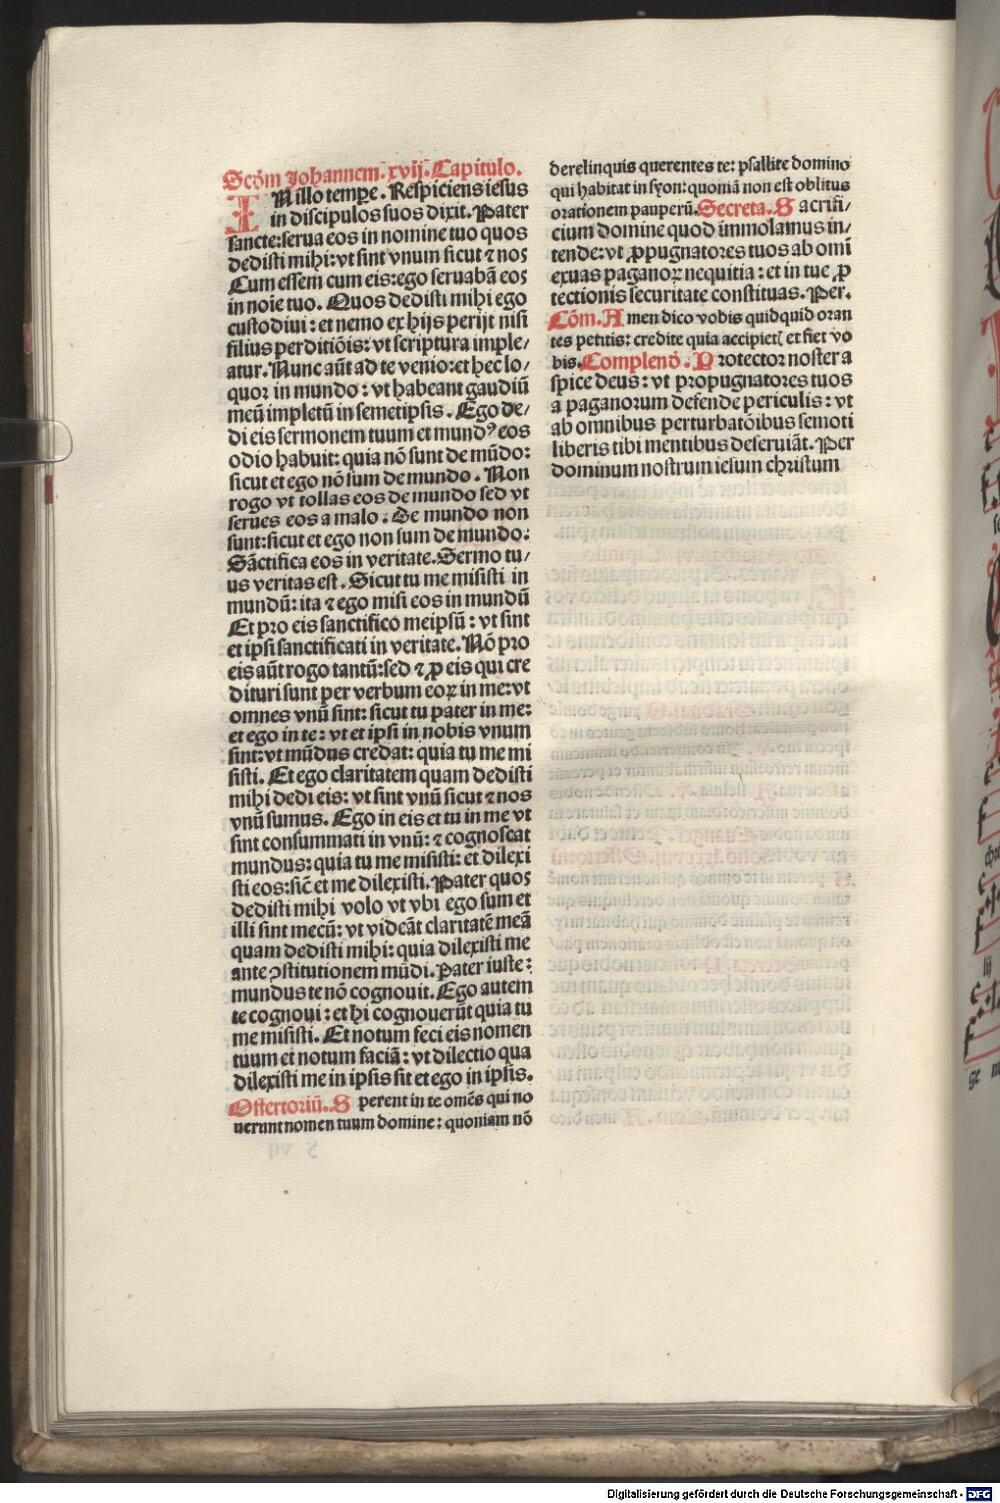 Scḋm Johannem. xvij. Capitulo.
IN illo tempꝑe. Respiciens iesus
in discipulos suos dixit. Pater
sancte: serua eos in nomine tuo quos
dedisti mihi: vt sint vnum sicut ⁊ nos
Cum essem cum eis: ego seruabā eos
in noīe tuo. Quos dedisti mihi ego
custodiui: et nemo ex hijs perijt nisi
filius perditiōis: vt scriptura imple/
atur. Nunc aūt ad te venio: et hec lo/
quor in mundo: vt habeant gaudiū
meū impletū in semetipsis. Ego de/
di eis sermonem tuum et mundꝰ eos
odio habuit: quia nō sunt de mūdo:
sicut et ego nō sum de mundo. Non
rogo vt tollas eos de mundo sed vt
serues eos a malo. De mundo non
sunt: sicut et ego non sum de mundo:
Sāctifica eos in veritate. Sermo tu/
us veritas est. Sicut tu me misisti in
mundū: ita ⁊ ego misi eos in mundū
Et pro eis sanctifico meipsū: vt sint
et ipsi sanctificati in veritate. Nō pro
eis aūt rogo tantū: sed ⁊ ꝓ eis qui cre
dituri sunt per verbum eoꝝ in me: vt
omnes vnū sint: sicut tu pater in me:
et ego in te: vt et ipsi in nobis vnum
sint: vt mūdus credat: quia tu me mi
sisti. Et ego claritatem quam dedisti
mihi dedi eis: vt sint vnū sicut ⁊ nos
vnū sumus. Ego in eis et tu in me vt
sint consummati in vnū: ⁊ cognoscat
mundus: quia tu me misisti: et dilexi
sti eos: sic̄ et me dilexisti. Pater quos
dedisti mihi volo vt vbi ego sum et
illi sint mecū: vt videāt claritatē meā
quam dedisti mihi: quia dilexisti me
ante ꝯstitutionem mūdi. Pater iuste:
mundus te nō cognouit. Ego autem
te cognoui: et hi cognouerūt quia tu
me misisti. Et notum feci eis nomen
tuum et notum faciā: vt dilectio qua
dilexisti me in ipsis sit et ego in ipsis.
Offertoriū. Sperent in te omēs qui no
uerunt nomen tuum domine: quoniam nō
derelinquis querentes te: psallite domino
qui habitat in syon: quoniā non est oblitus
orationem pauperū. Secreta. Sacrifi/
cium domine quod immolamus in/
tende: vt ꝓpugnatores tuos ab omī
exuas paganoꝝ nequitia: et in tue ꝓ
tectionis securitate constituas. Per.
Cōm. Amen dico vobis quidquid oran
tes petitis: credite quia accipietꝭ et fiet vo
bis. Complenō. Protector noster a
spice deus: vt propugnatores tuos
a paganorum defende periculis: vt
ab omnibus perturbatōibus semoti
liberis tibi mentibus deseruiāt. Per
dominum nostrum iesum christum
Digitalisierung gefördert durch die Deutsche Forschungsgemeinschaft - DFG